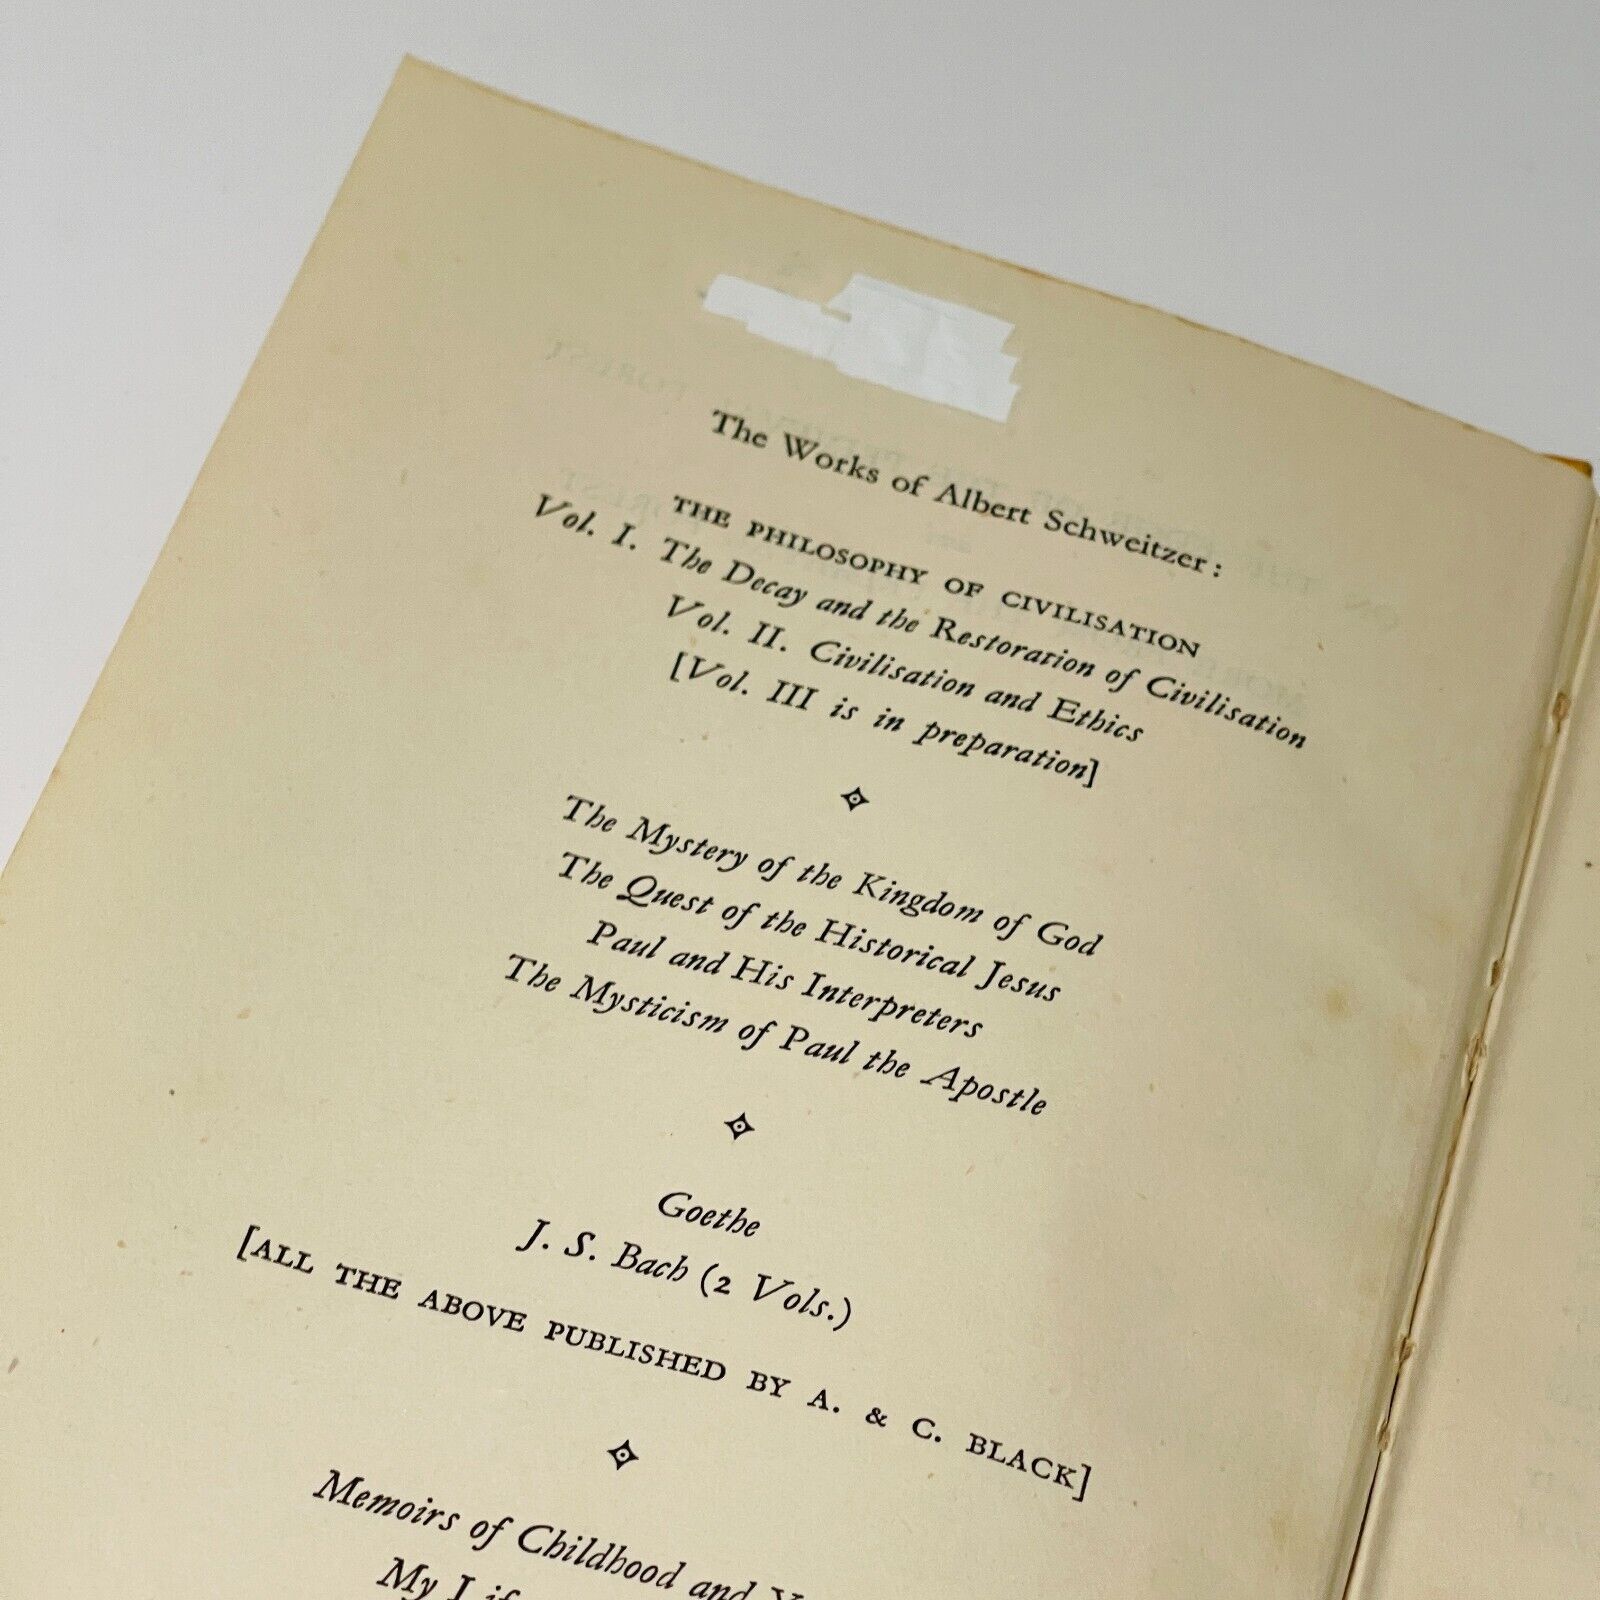 The Works of Albert Schweitzer:
THE PHILOSOPHY OF CIVILISATION
Vol. I. The Decay and the Restoration of Civilisation
Vol. II. Civilisation and Ethics
[Vol. III is in preparation]
The Mystery of the Kingdom of God
The Quest of the Historical Jesus
Paul and His Interpreters
The Mysticism of Paul the Apostle
Goethe
J. S. Bach (2 Vols.)
[ALL THE ABOVE PUBLISHED BY A. & C. BLACK]
Memoirs of Childhood and
My